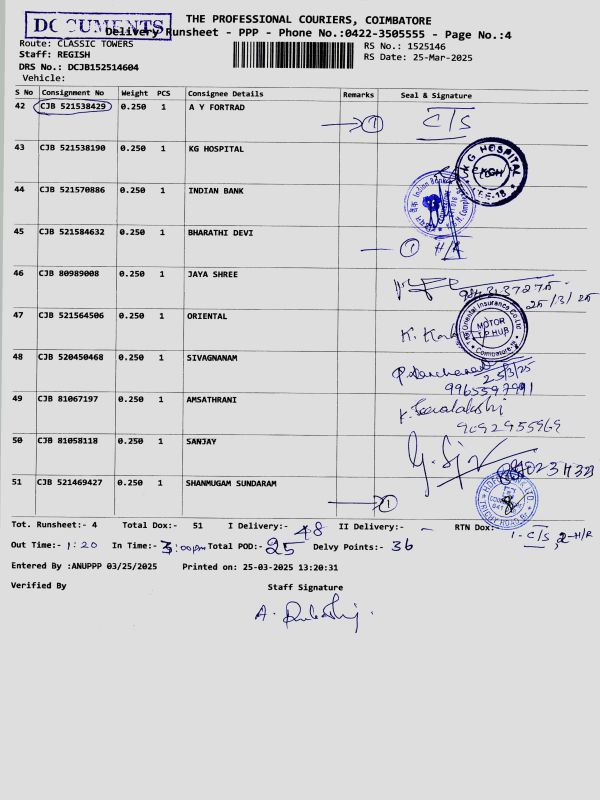 DOCUMENTS
THE PROFESSIONAL COURIERS, COIMBATORE
Delivery Runsheet - PPP - Phone No.:0422-3505555 - Page No.:4
Route: CLASSIC TOWERS
RS No.: 1525146
Staff: REGISH
RS Date: 25-Mar-2025
DRS No.: DCJB152514604
Vehicle:
S No Consignment No Weight PCS Consignee Details Remarks Seal & Signature
42 CJB 521538429 0.250 1 A Y FORTRAD
1 C/S
43 CJB 521538190 0.250 1 KG HOSPITAL
K G HOSPITAL
KGH
44 CJB 521570886 0.250 1 INDIAN BANK
Indian Bank
45 CJB 521584632 0.250 1 BHARATHI DEVI
1 H/R
46 CJB 80989008 0.250 1 JAYA SHREE
25/3/25
47 CJB 521564506 0.250 1 ORIENTAL
The Oriental Insurance Co. Ltd
MOTOR
T P HUB
Coimbatore
48 CJB 520450468 0.250 1 SIVAGNANAM
25/3/25
9965597991
49 CJB 81067197 0.250 1 AMSATHRANI
9092955969
50 CJB 81058118 0.250 1 SANJAY
51 CJB 521469427 0.250 1 SHANMUGAM SUNDARAM
1
Tot. Runsheet:- 4 Total Dox:- 51 I Delivery:- 48 II Delivery:- - RTN Dox:- 1-C/S, 2-H/R
Out Time:- 1:20 In Time:- 3:00pm Total POD:- 25 Delvy Points:- 36
Entered By :ANUPPP 03/25/2025 Printed on: 25-03-2025 13:20:31
Verified By Staff Signature